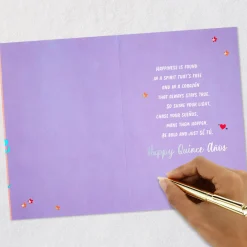 HAPPINESS IS FOUND
IN A SPIRIT THAT'S FREE
AND IN A CORAZÓN
THAT ALWAYS STAYS TRUE.
SO SHINE YOUR LIGHT,
CHASE YOUR SUEÑOS,
MAKE THEM HAPPEN,
BE BOLD AND JUST SÉ TÚ.
Happy Quince Años